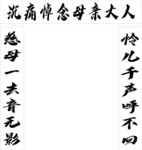 沉痛悼念母亲大人
怜儿千声呼不回
慈母一去音无影